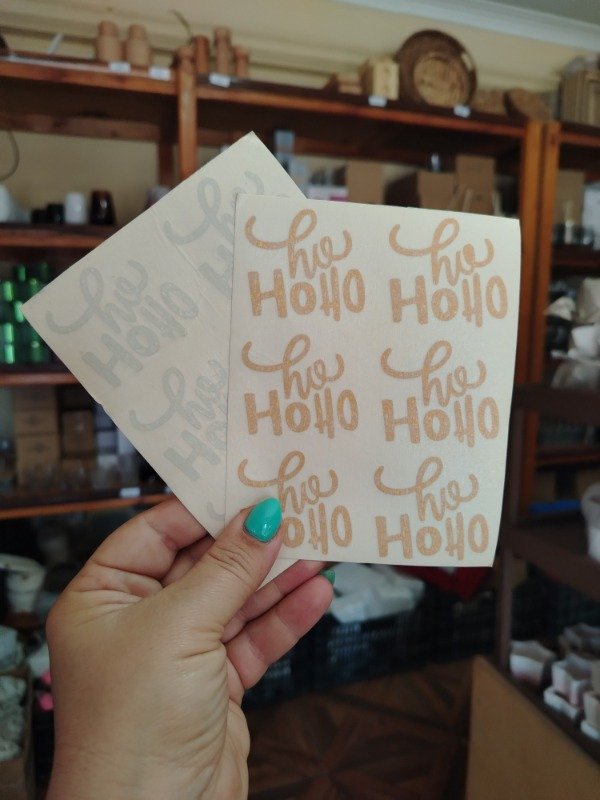 ho
HoHo
ho
HoHo
ho
HoHo
ho
HoHo
ho
HoHo
ho
HoHo
ho
HoHo
ho
Ho